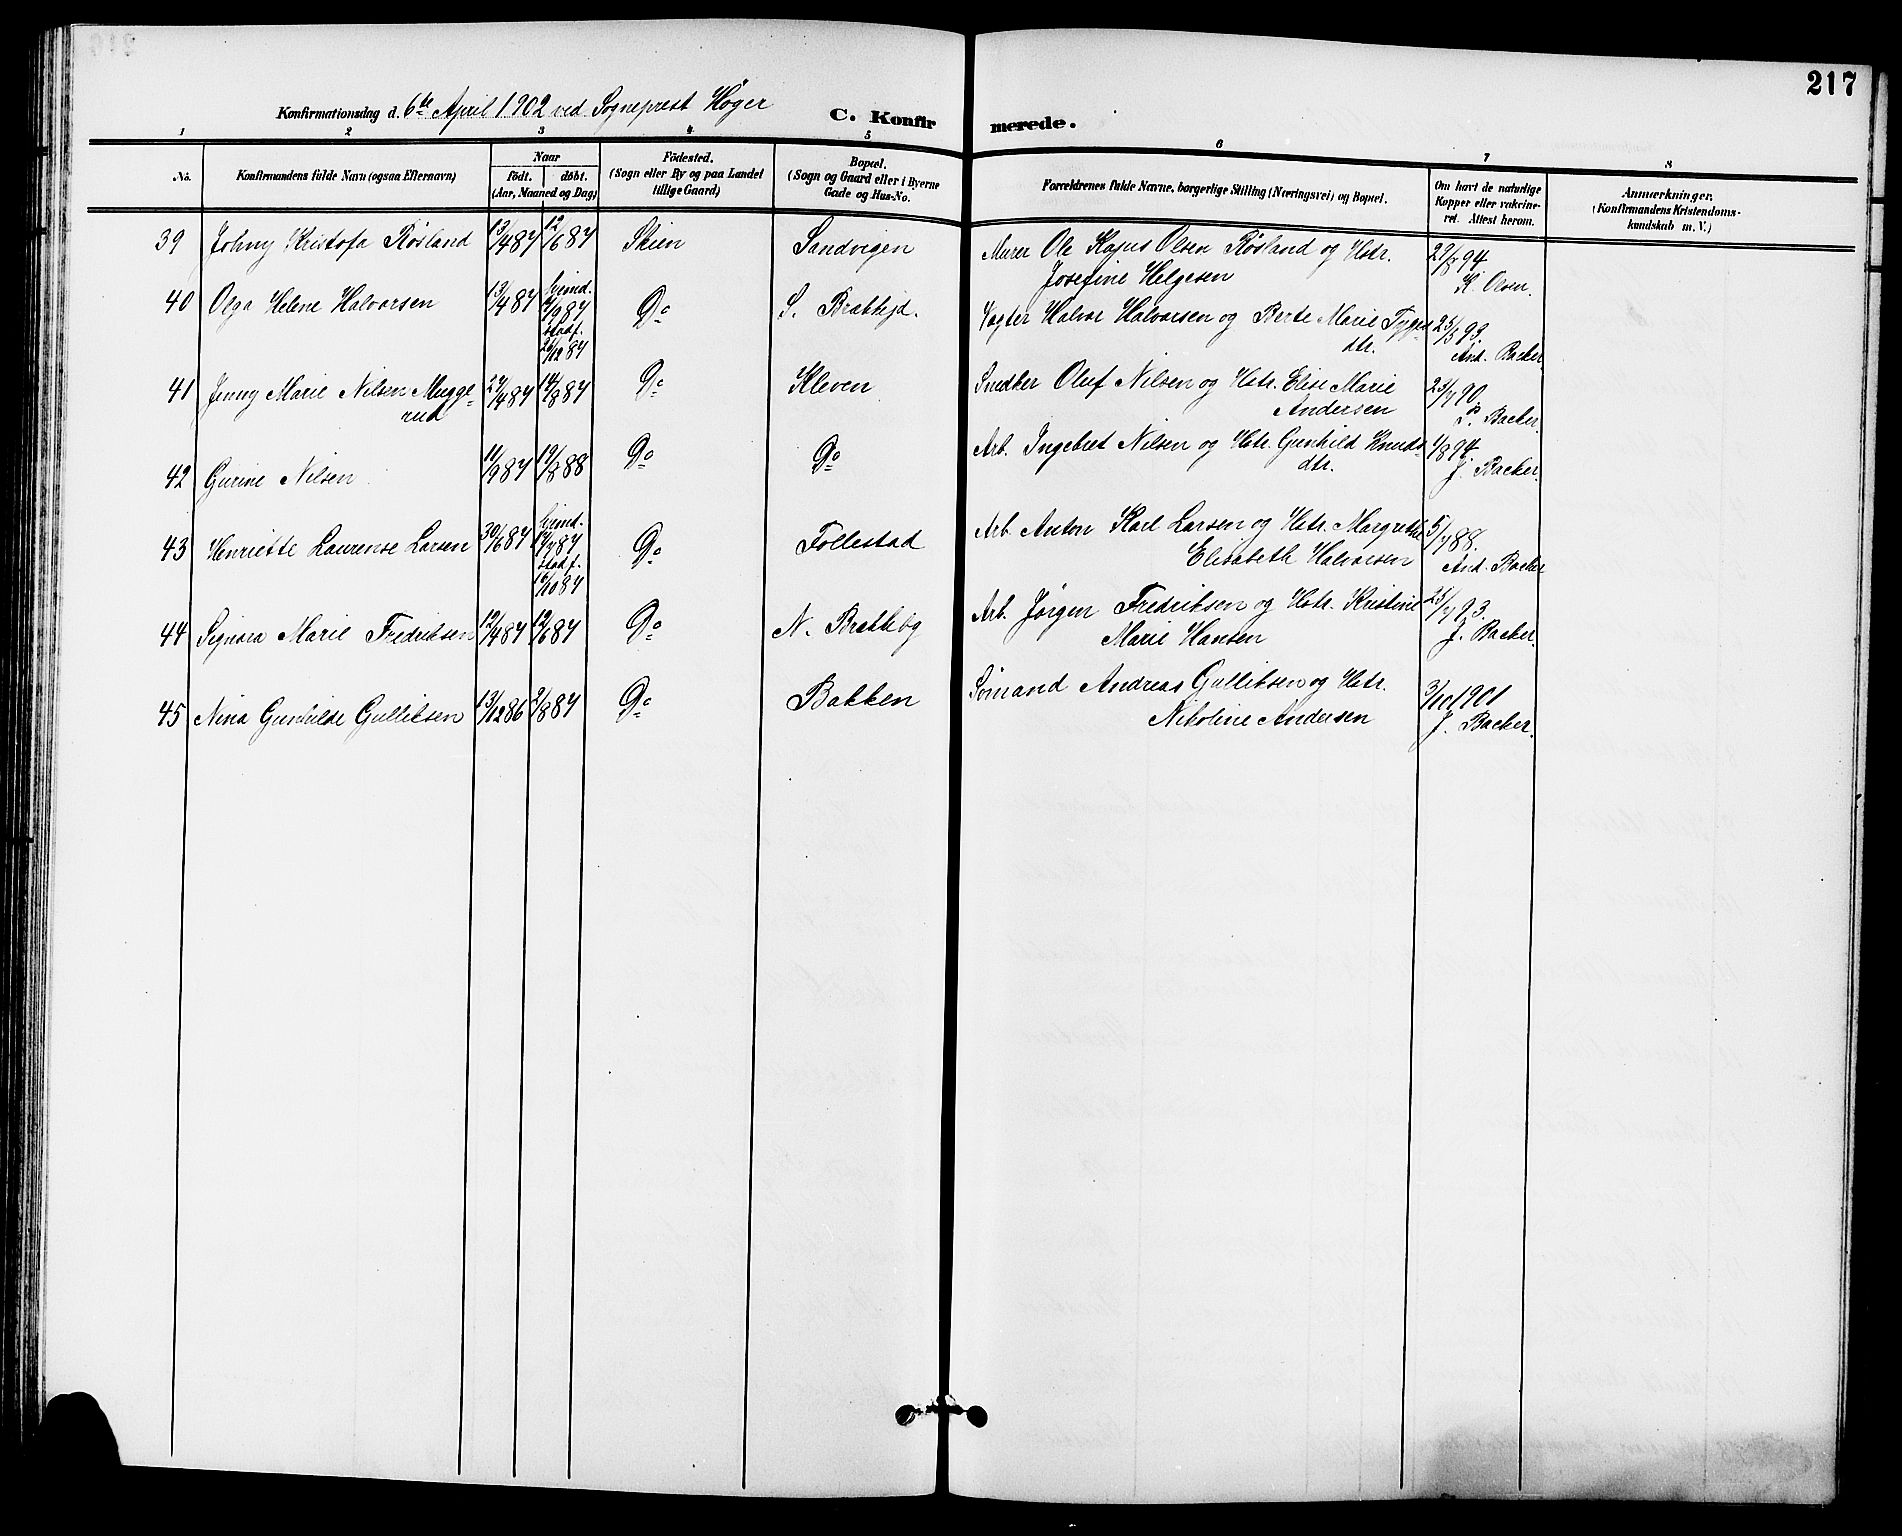 217
Konfirmationsdag d. 6te April 1902 ved Sogneprest Høger
C. Konfirmerede.
1 2 3 4 5 6 7 8
No. Konfirmandens fulde Navn (ogsaa Efternavn) Naar født. døbt. (Aar, Maaned og Dag) Födested. (Sogn eller By og paa Landet tillige Gaard) Bopæl. (Sogn og Gaard eller i Byerne Gade og Hus-No. Forældrenes fulde Navne, borgerlige Stilling (Næringsvei) og Bopæl. Om havt de naturlige Kopper eller vakcineret. Attest herom. Anmærkninger. (Konfirmandens Kristendomskundskab m. V.)
39 Johny Kristofa Røsland 19/4 87 12/6 87 Skien Sandvigen Murer Ole Kajus Olsen Røsland og Hstr. 29/8 94
Josefine Helgesen K. Olsen.
40 Olga Helene Halvorsen 13/4 87 hjemd. 4/9 87 stadf. 26/12 87 Do S. Brækkejd. Vagter Halvor Halvorsen og Berte Marie Tyges 25/5 93.
dtr. And. Backer
41 Jenny Marie Nilsen Mugge- 29/4 87 14/8 87 Do Kleven Snedker Oluf Nilsen og Hstr. Elise Marie 23/7 90.
rud Andersen P. Backer.
42 Gurine Nilsen 11/9 87 19/8 88 Do Do Arb. Ingebret Nilsen og Hstr. Gunhild Knuds 1/8 94.
dtr. J. Backer.
43 Henriette Laurense Larsen 30/6 87 hjemd. 17/7 87 stadf. 16/10 87 Do Follestad Arb. Anton Karl Larsen og Hstr. Margrethe 5/7 88.
Elisabeth Halvorsen And. Backer
44 Signora Marie Fredriksen 12/4 87 12/6 87 Do N. Brækkbg Arb. Jørgen Fredriksen og Hstr. Kristine 25/7 93.
Marie Hansen J. Backer.
45 Nina Gunhilde Gulliksen 13/12 86 2/8 87 Do Bakken Sømand Andreas Gulliksen og Hstr. 3/10 1901
Nikoline Andersen J. Backer.